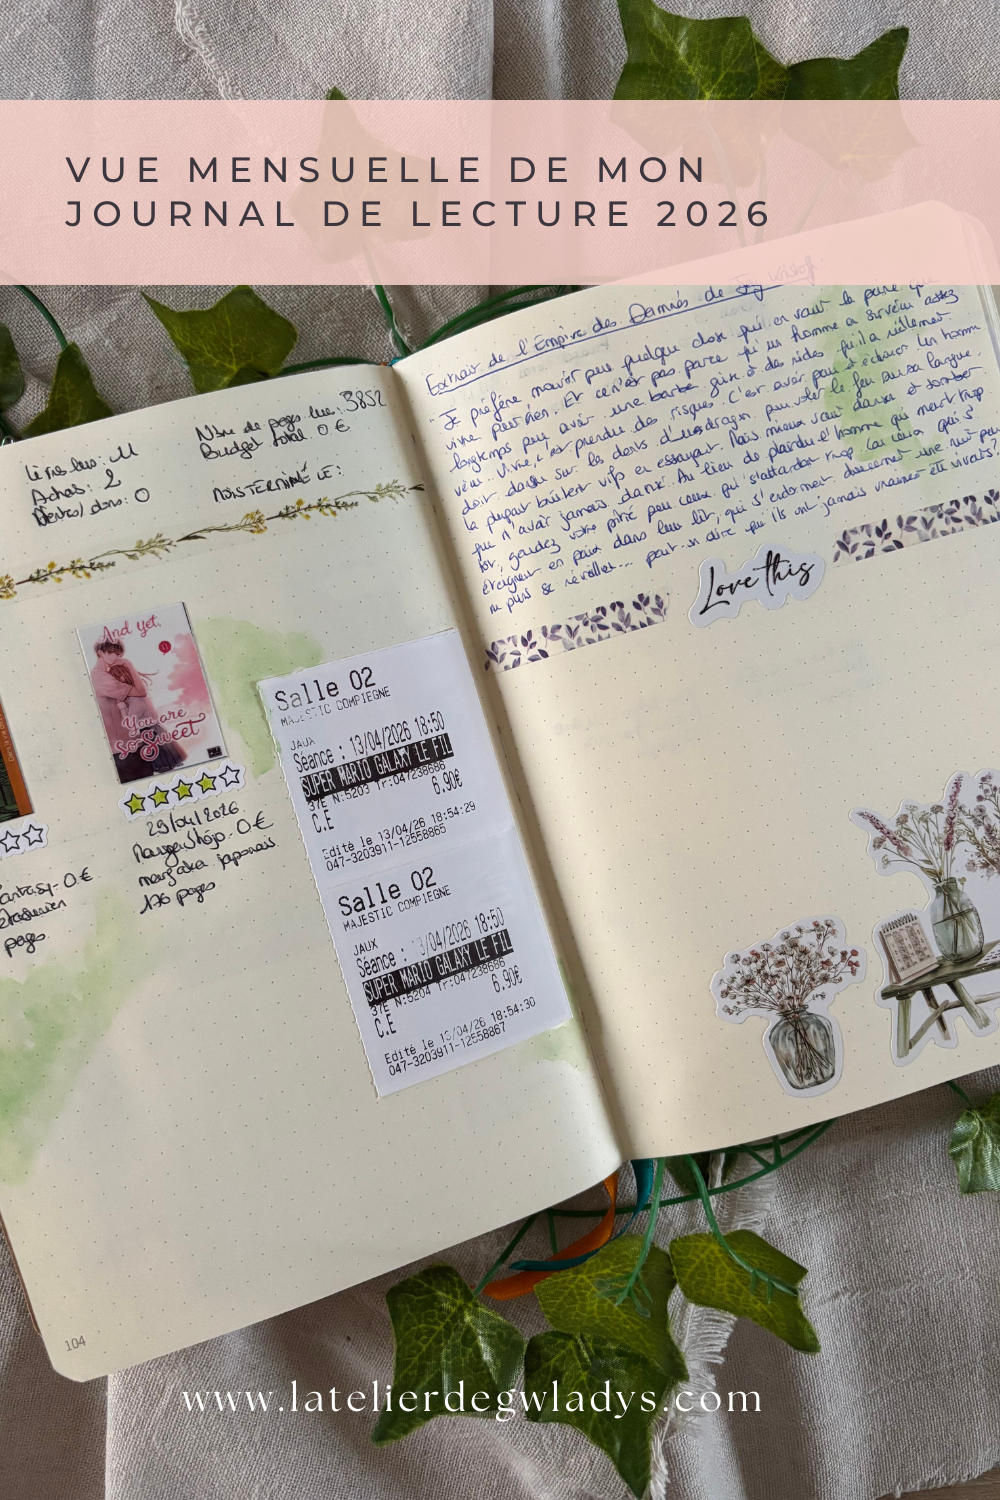 VUE MENSUELLE DE MON
JOURNAL DE LECTURE 2026
Livres lus: 11
Achat: 2
Ventes/dons: 0
Nbre de pages lues: 3852
Budget total: 0 €
MOIS TERMINÉ LE:
And yet,
You are
so Sweet
29/04/2026
Manga Shôjo - 0 €
mangaka japonais
176 pages
fantasy - 0 €
pages
Salle 02
MAJESTIC COMPIEGNE
JAUX
Séance : 13/04/2026 18:50
SUPER MARIO GALAXY LE FIL
37E N:5203 Tr:047238686
6.90€
C.E
Edité le 13/04/26 18:54:29
047-3203911-12558865
Salle 02
MAJESTIC COMPIEGNE
JAUX
Séance : 13/04/2026 18:50
SUPER MARIO GALAXY LE FIL
37E N:5204 Tr:047238686
6.90€
C.E
Edité le 13/04/26 18:54:30
047-3203911-12558867
104
Extrait de l'Empire des Damnés de Jay Kristoff
"Je préfère mourir pour quelque chose qui en vaut la peine que
vivre pour rien. Et ce n'est pas parce qu'un homme a survécu assez
longtemps pour avoir une barbe grise et des rides qu'il a réellement
vécu... Vivre, c'est prendre des risques. C'est avoir peur et échouer. Un homme
doit danser sur les dents d'un dragon pour voler le feu sur sa langue.
la plupart brûlent vifs en essayant. Mais mieux vaut danser et tomber
que n'avoir jamais dansé. Au lieu de plaindre l'homme qui meurt trop
tôt, gardez votre pitié pour ceux qui s'attardent trop. Car ceux qui s'
éteignent en paix dans leur lit, qui s'endorment doucement une nuit pour
ne plus se réveiller... peut-on dire qu'ils ont jamais vraiment été vivants?
Love this
www.latelierdegwladys.com